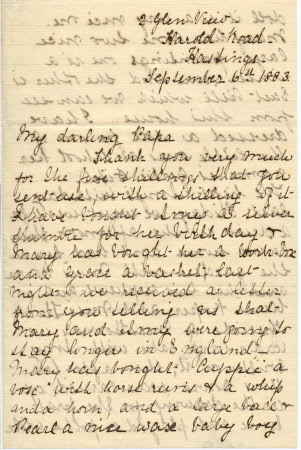 2 Glen View
Harold Road
Hastings
September 6th 1883
My darling Papa
Thank you very much
for the five shillings that you
sent me with a shilling of it
I have bought Emy a silver
thimble for her birthday &
Mary has bought her a work box
and Grace a basket Last
night we received a letter
from you telling us that
Mary and Emy were going to
stay longer in England
Mary has bought a
with horse reins & a whip
and a horn and a large &
Pearl a nice wax baby boy